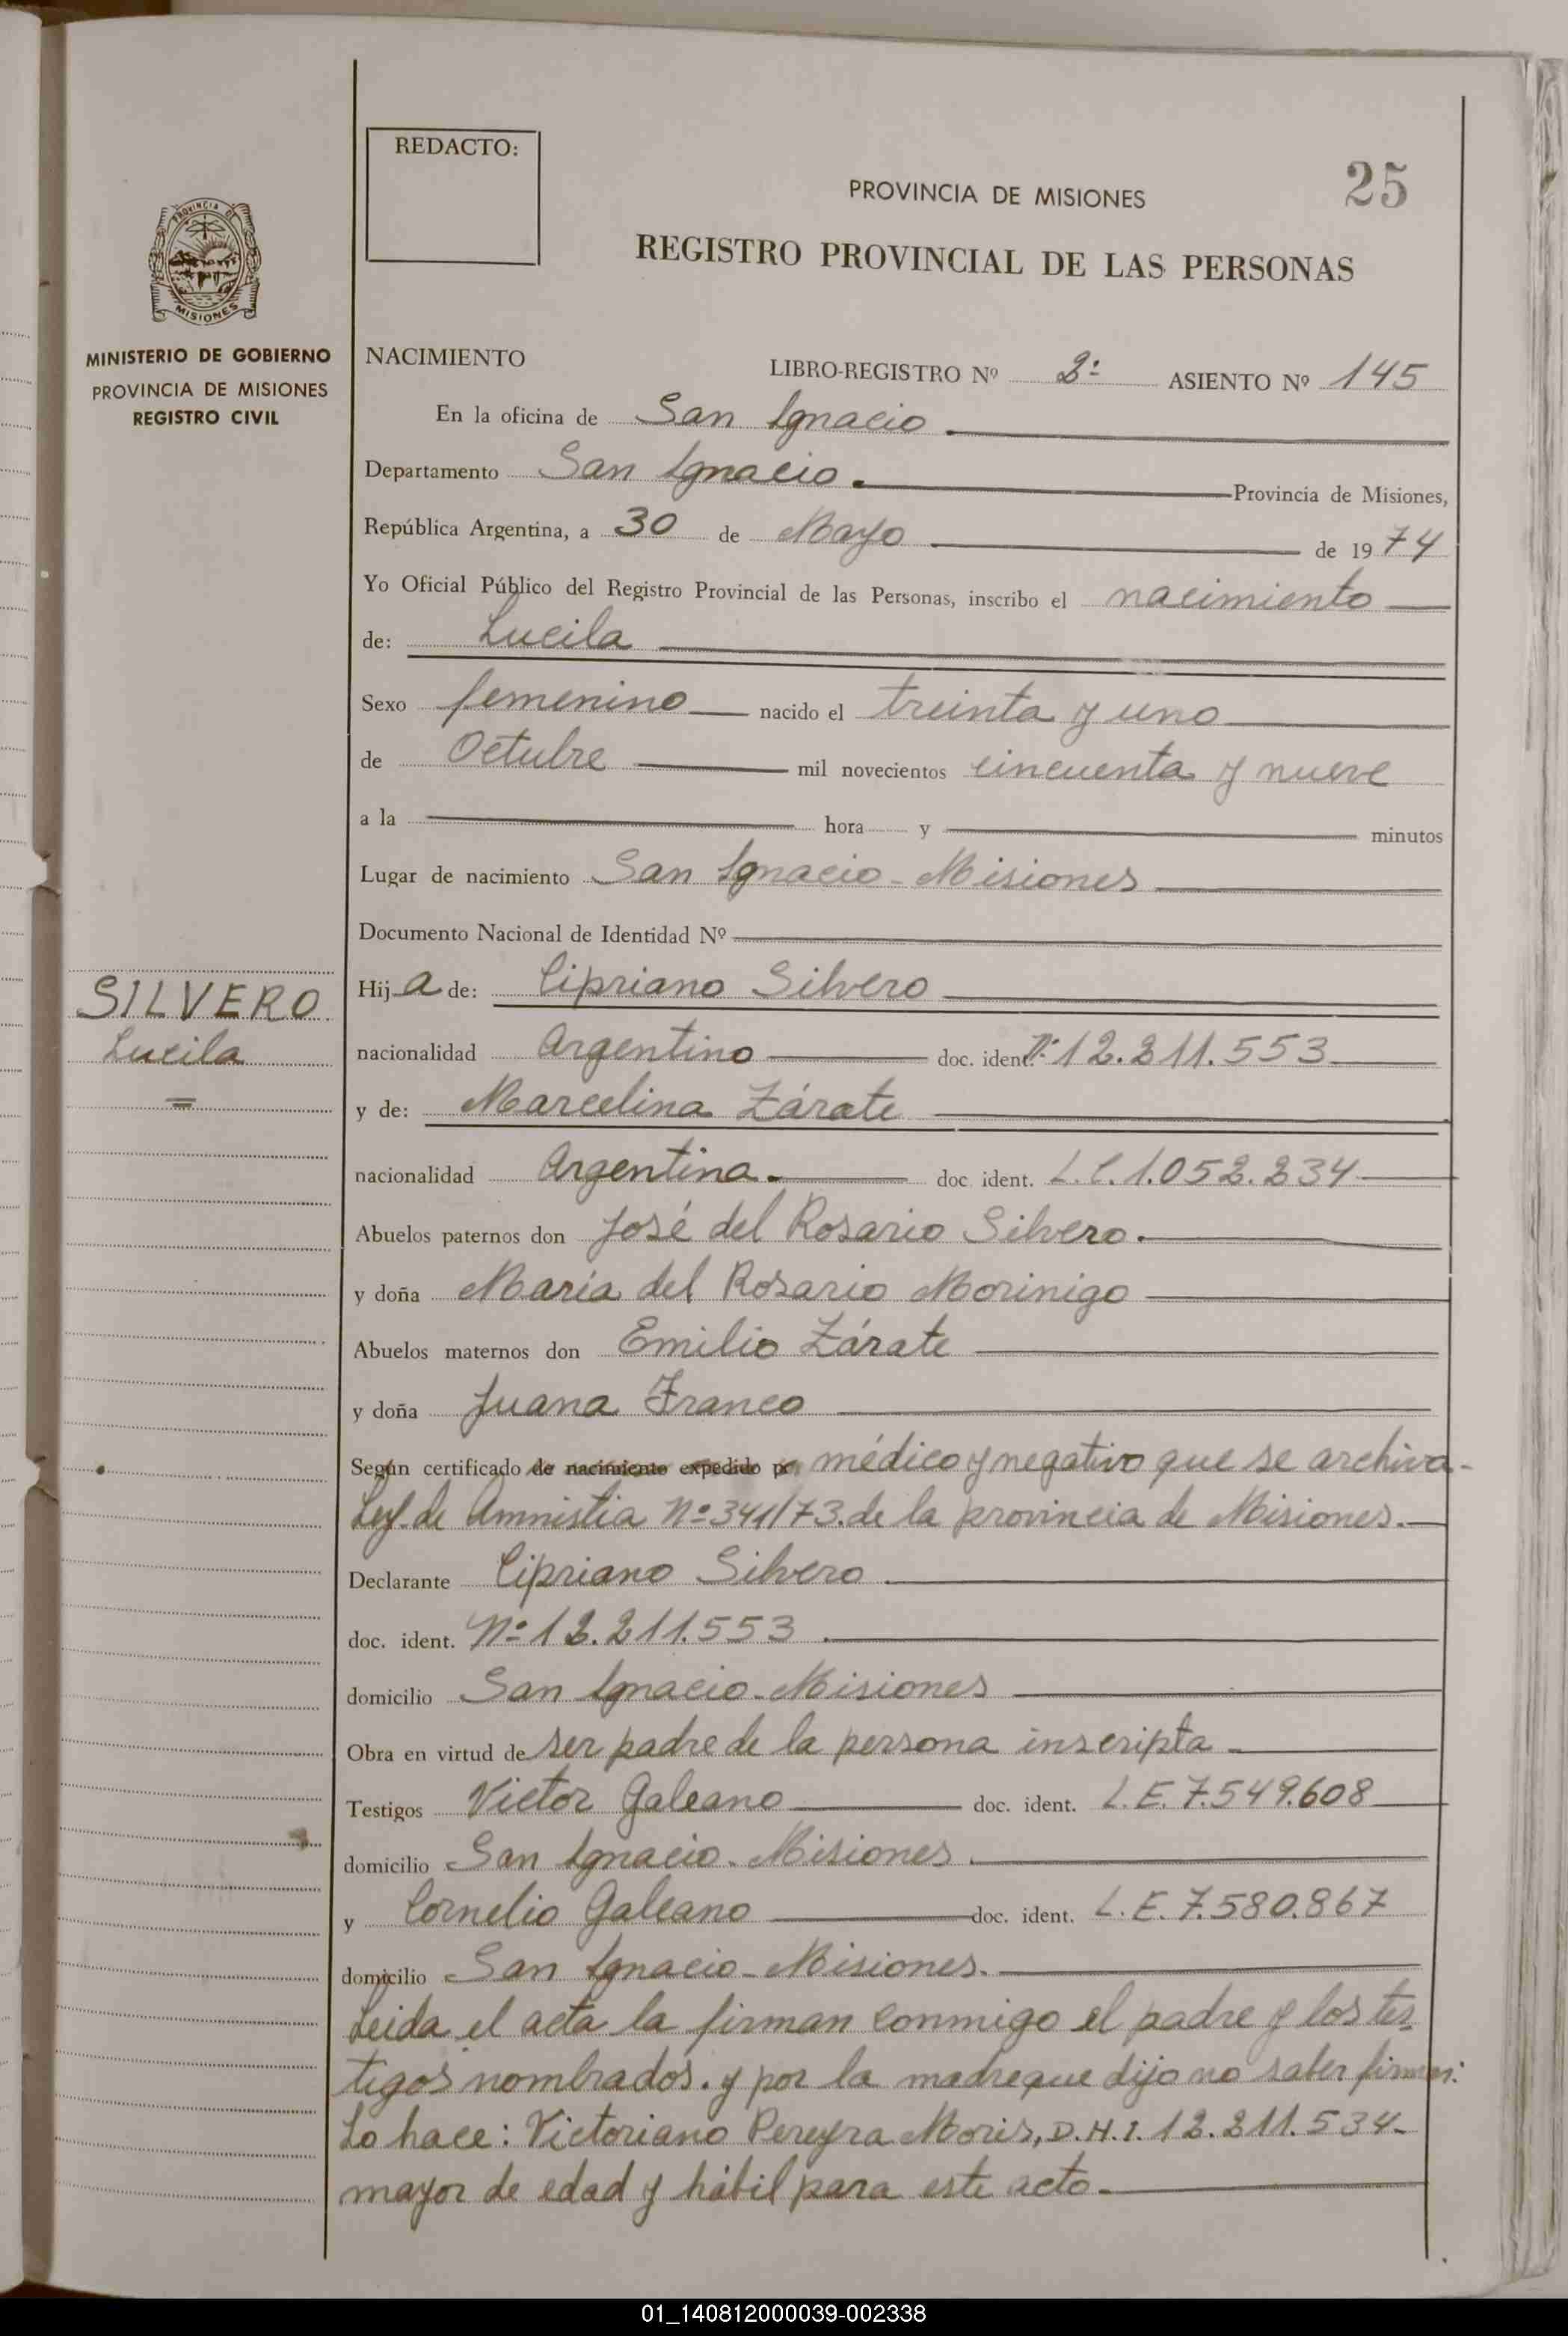 REDACTO:
25
PROVINCIA DE MISIONES
REGISTRO PROVINCIAL DE LAS PERSONAS
PROVINCIA DE
MISIONES
MINISTERIO DE GOBIERNO
PROVINCIA DE MISIONES
REGISTRO CIVIL
NACIMIENTO
LIBRO-REGISTRO Nº 2º ASIENTO Nº 145
En la oficina de San Ignacio.
Departamento San Ignacio. Provincia de Misiones,
República Argentina, a 30 de Mayo de 1974
Yo Oficial Público del Registro Provincial de las Personas, inscribo el nacimiento
de: Lucila
Sexo femenino nacido el treinta y uno
de Octubre mil novecientos cincuenta y nueve
a la hora y minutos
Lugar de nacimiento San Ignacio - Misiones
Documento Nacional de Identidad Nº
SILVERO
Lucila
=
Hija de: Cipriano Silvero
nacionalidad Argentino doc. ident. Nº 12.211.553
y de: Marcelina Zárate
nacionalidad Argentina. doc. ident. L.C. 1.052.234
Abuelos paternos don José del Rosario Silvero.
y doña María del Rosario Morinigo
Abuelos maternos don Emilio Zárate
y doña Juana Franco
Según certificado de nacimiento expedido po médico y negativo que se archiva-
Ley de Amnistia Nº 341/73. de la provincia de Misiones.
Declarante Cipriano Silvero
doc. ident. Nº 12.211.553
domicilio San Ignacio - Misiones
Obra en virtud de ser padre de la persona inscripta
Testigos Victor Galeano doc. ident. L.E. 7.549.608
domicilio San Ignacio - Misiones
y Cornelio Galeano doc. ident. L.E. 7.580.867
domicilio San Ignacio - Misiones.
Leida el acta la firman conmigo el padre y los tes-
tigos nombrados. y por la madre que dijo no saber firmar:
Lo hace: Victoriano Pereyra Moris, D.N.I. 12.211.534-
mayor de edad y hábil para este acto.
01_140812000039-002338